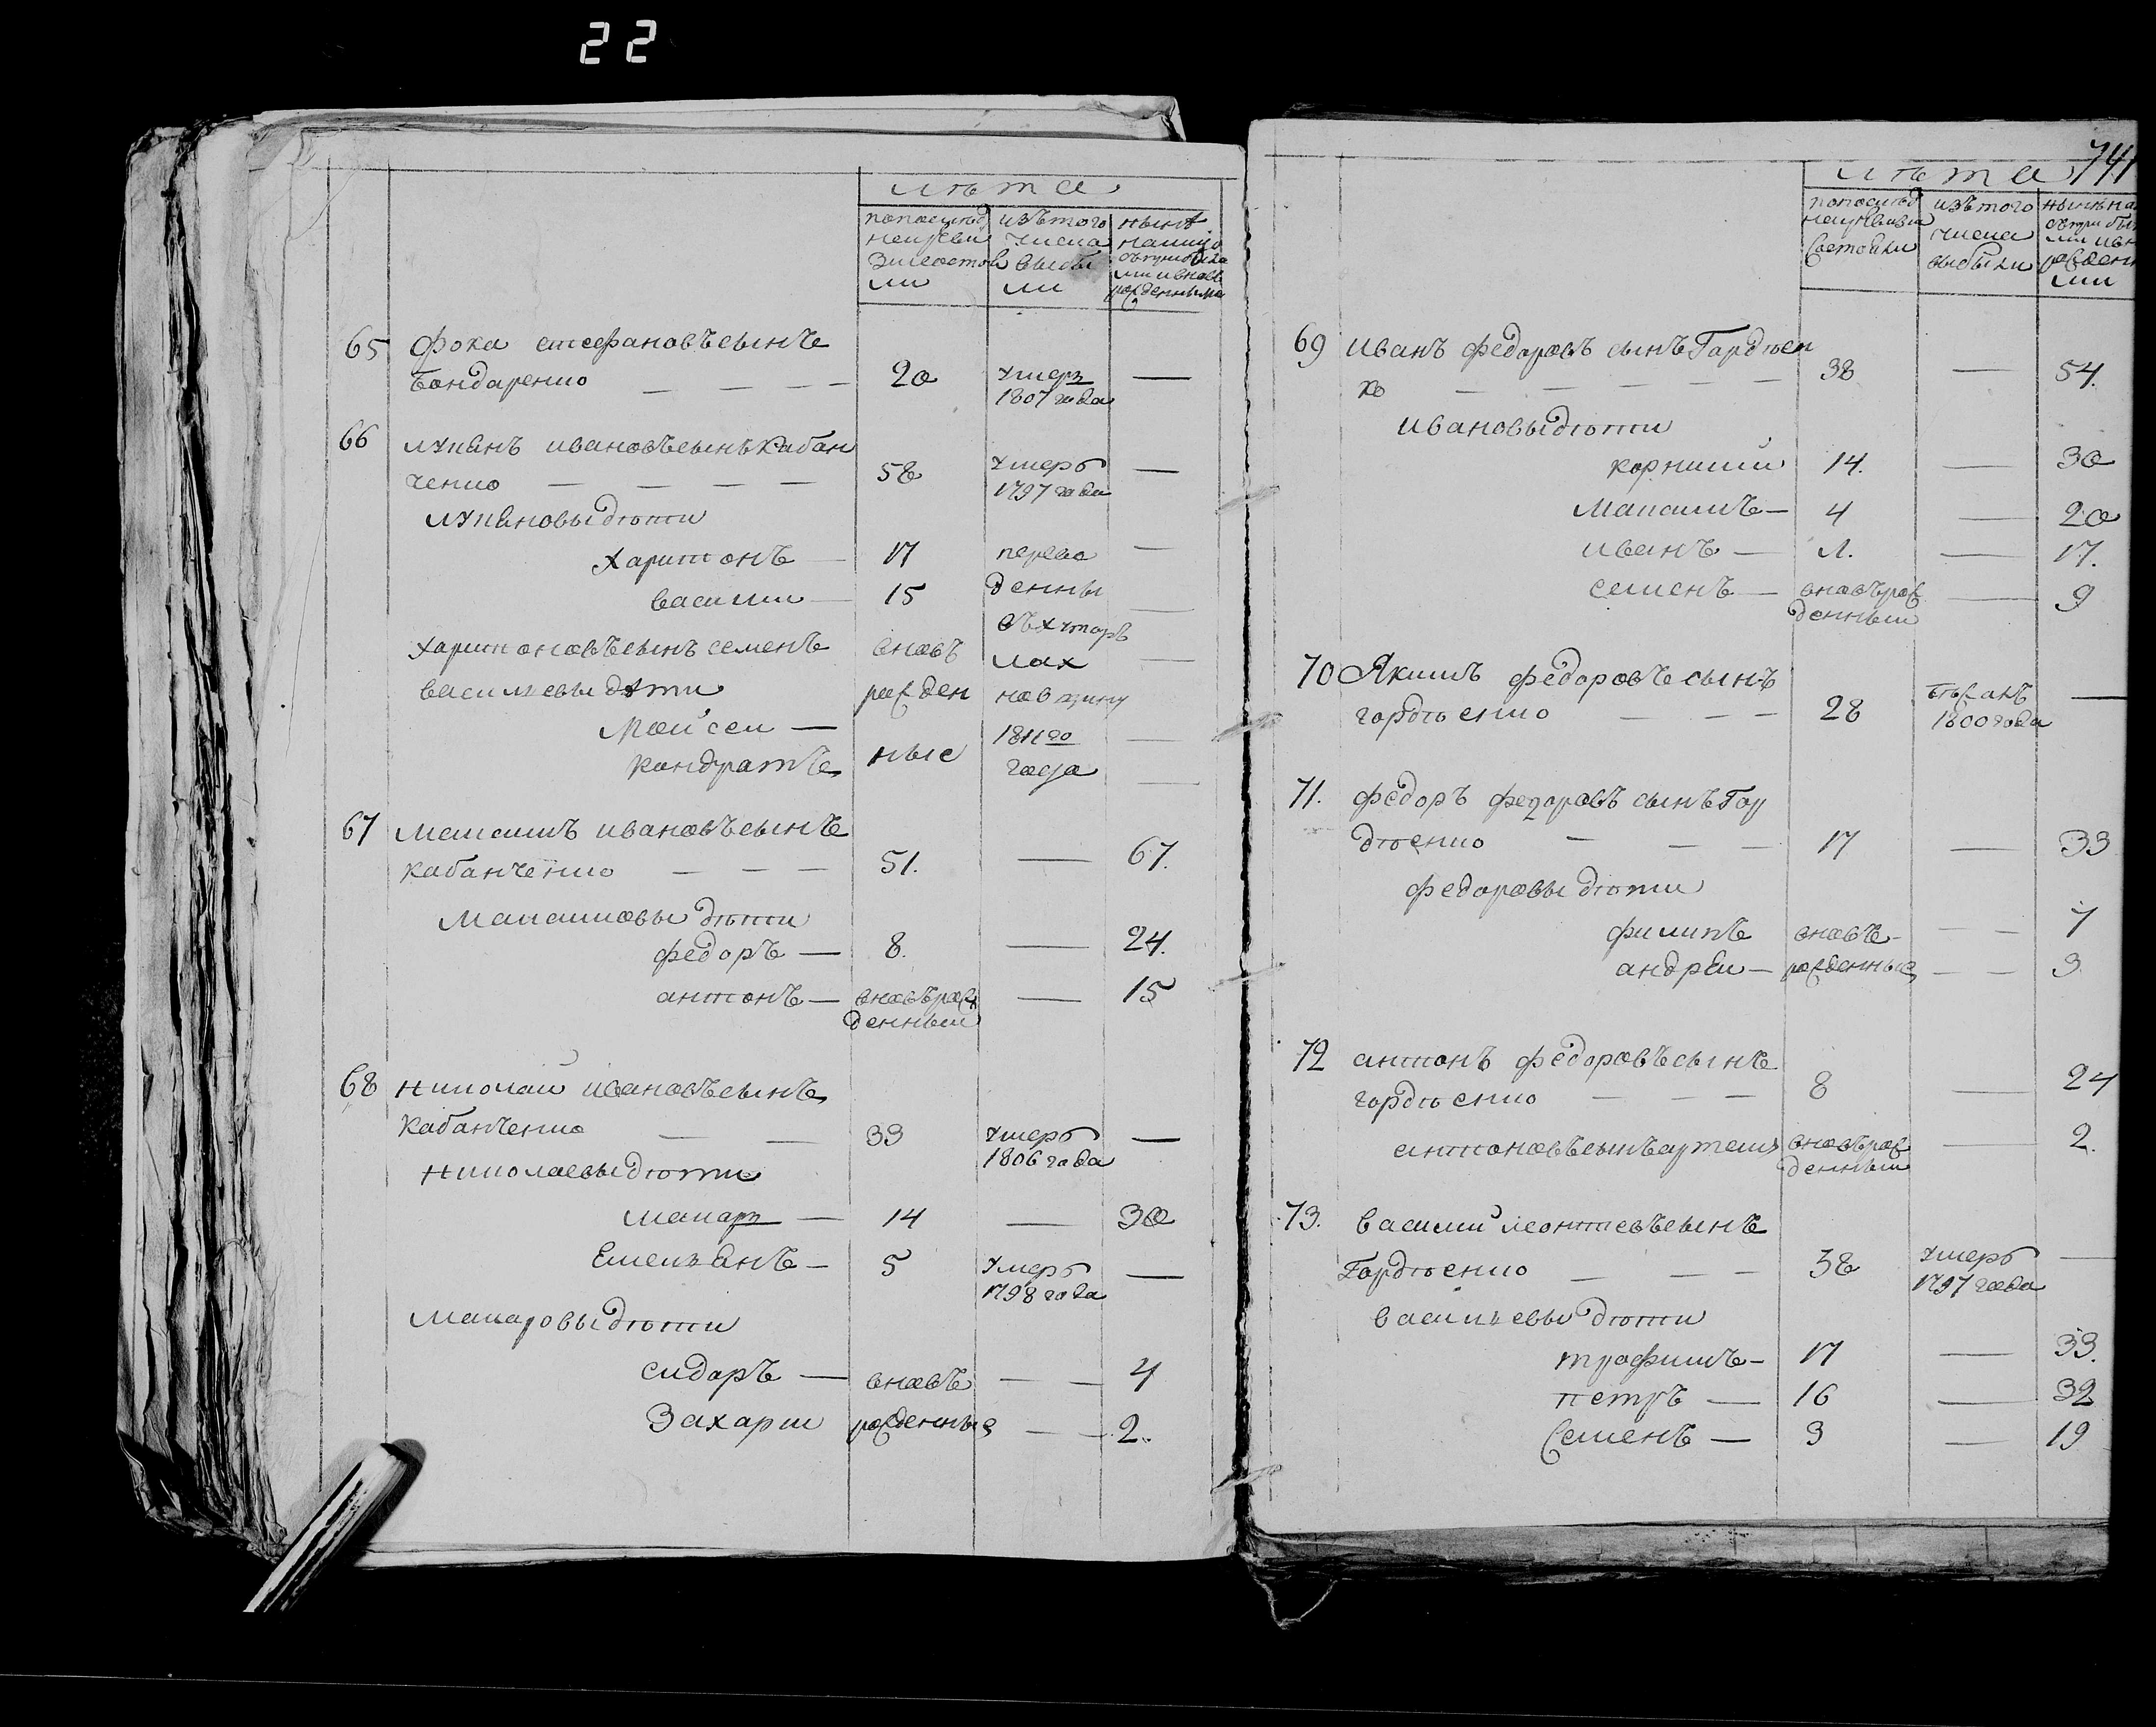 22
лѣта
попослѣд изътого нынѣ
ней реви числа налицо
зиисостоя выбы
ли ли рожденными
65 фока стефановъ сынъ
бондаренко — — — — 20 умеръ —
1807 года
66 лукянъ ивановъ сынъ Кабан
ченко — — — — 58 умеръ —
1797 года
лукяновы дѣти
харитонъ — 17 переве —
василии — 15 денны —
харитоновъ сынъ семенъ вновь
василиевы дѣти рожден
Моисеи — 1811го —
кондратъ ные года —
67 максимъ ивановъ сынъ
кабанченко — — — 51. — 67.
Максимовы дѣти
федоръ — 8. — 24.
антонъ — вновьрож — 15
денныи
68 николаи ивановъ сынъ
кабанченко — — 33 умеръ —
1806 года
николаевы дѣти
макаръ — 14 — 30
Емельянъ — 5 умеръ —
1798 года
макаровы дѣти
сидоръ — вновь — — 4
Захарии рожденные — — 2.
741
лѣта
попослѣд изътого
числа
состояли выбыли
ми
69 иванъ федоровъ сынъ Гордѣен
ко — — — — — 38 — 54.
ивановы дѣти
корнилии 14. — 30
Максимъ — 4 — 20
иванъ — 1. — 17.
семенъ — вновьрож — 9
денныи
70 Якимъ федоровъ сынъ
гордѣенко — — — 28 —
1800 года
71. федоръ федоровъ сынъ Гор
дѣенко — — — 17 — 33
федоровы дѣти
филипъ вновь — — — 7
андреи — рожденные — — 3
72 антонъ федоровъ сынъ
гордѣенко — — — 8 — 24
антоновъ сынъ артемъ вновьрож — 2.
денныи
73. василии леонтиевъ сынъ
Гордѣенко — — — 38 умеръ —
1797 года
василиевы дѣти
трофимъ — 17 — 33.
петръ — 16 — 32
Семенъ — 3 — 19